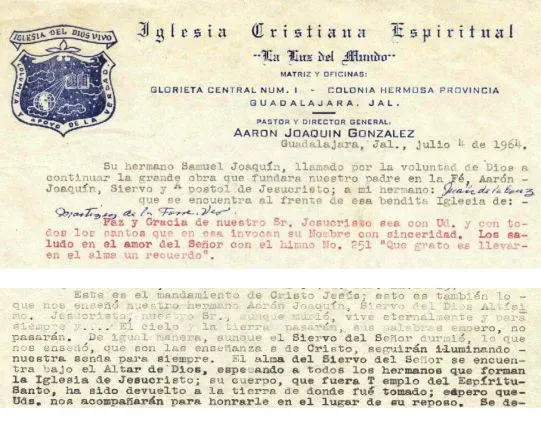 IGLESIA DEL DIOS VIVO
COLUMNA Y APOYO DE LA VERDAD
Iglesia Cristiana Espiritual
"La Luz del Mundo"
MATRIZ Y OFICINAS:
GLORIETA CENTRAL NUM. 1 - COLONIA HERMOSA PROVINCIA
GUADALAJARA, JAL.
PASTOR Y DIRECTOR GENERAL:
AARON JOAQUIN GONZALEZ
Guadalajara, Jal., julio 4 de 1964.
Su hermano Samuel Joaquín, llamado por la voluntad de Dios a
continuar la grande obra que fundara nuestro padre en la Fé, Aarón -
Joaquín, Siervo y A postol de Jesucristo; a mi hermano: Juan de la Cruz
que se encuentra al frente de esa bendita Iglesia de: -
Martinez de la Torre, Ver.
Paz y Gracia de nuestro Sr. Jesucristo sea con Ud. y con to-
dos los santos que en esa invocan su Nombre con sinceridad. Los sa-
ludo en el amor del Señor con el himno No. 251 "Que grato es llevar-
en el alma un recuerdo".
Este es el mandamiento de Cristo Jesús; esto es también lo -
que nos enseñó nuestro hermano Aarón Joaquín, Siervo del Dios Altísi
mo. Jesucristo, nuestro Sr., aunque murió, vive eternalmente y para
siempre y.... El cielo y la tierra pasarán, sus palabras empero, no
pasarán. De igual manera, aunque el Siervo del Señor durmió, lo que
nos enseñó, que son las enseñanza s de Cristo, seguirán iluminando -
nuestra senda para siempre. El alma del Siervo del Señor se encuen-
tra bajo el Altar de Dios, esperando a todos los hermanos que forman
la Iglesia de Jesucristo; su cuerpo, que fuera T emplo del Espíritu-
Santo, ha sido devuelto a la tierra de donde fué tomado; espero que-
Uds. nos acompañarán para honrarle en el lugar de su reposo. Se de-